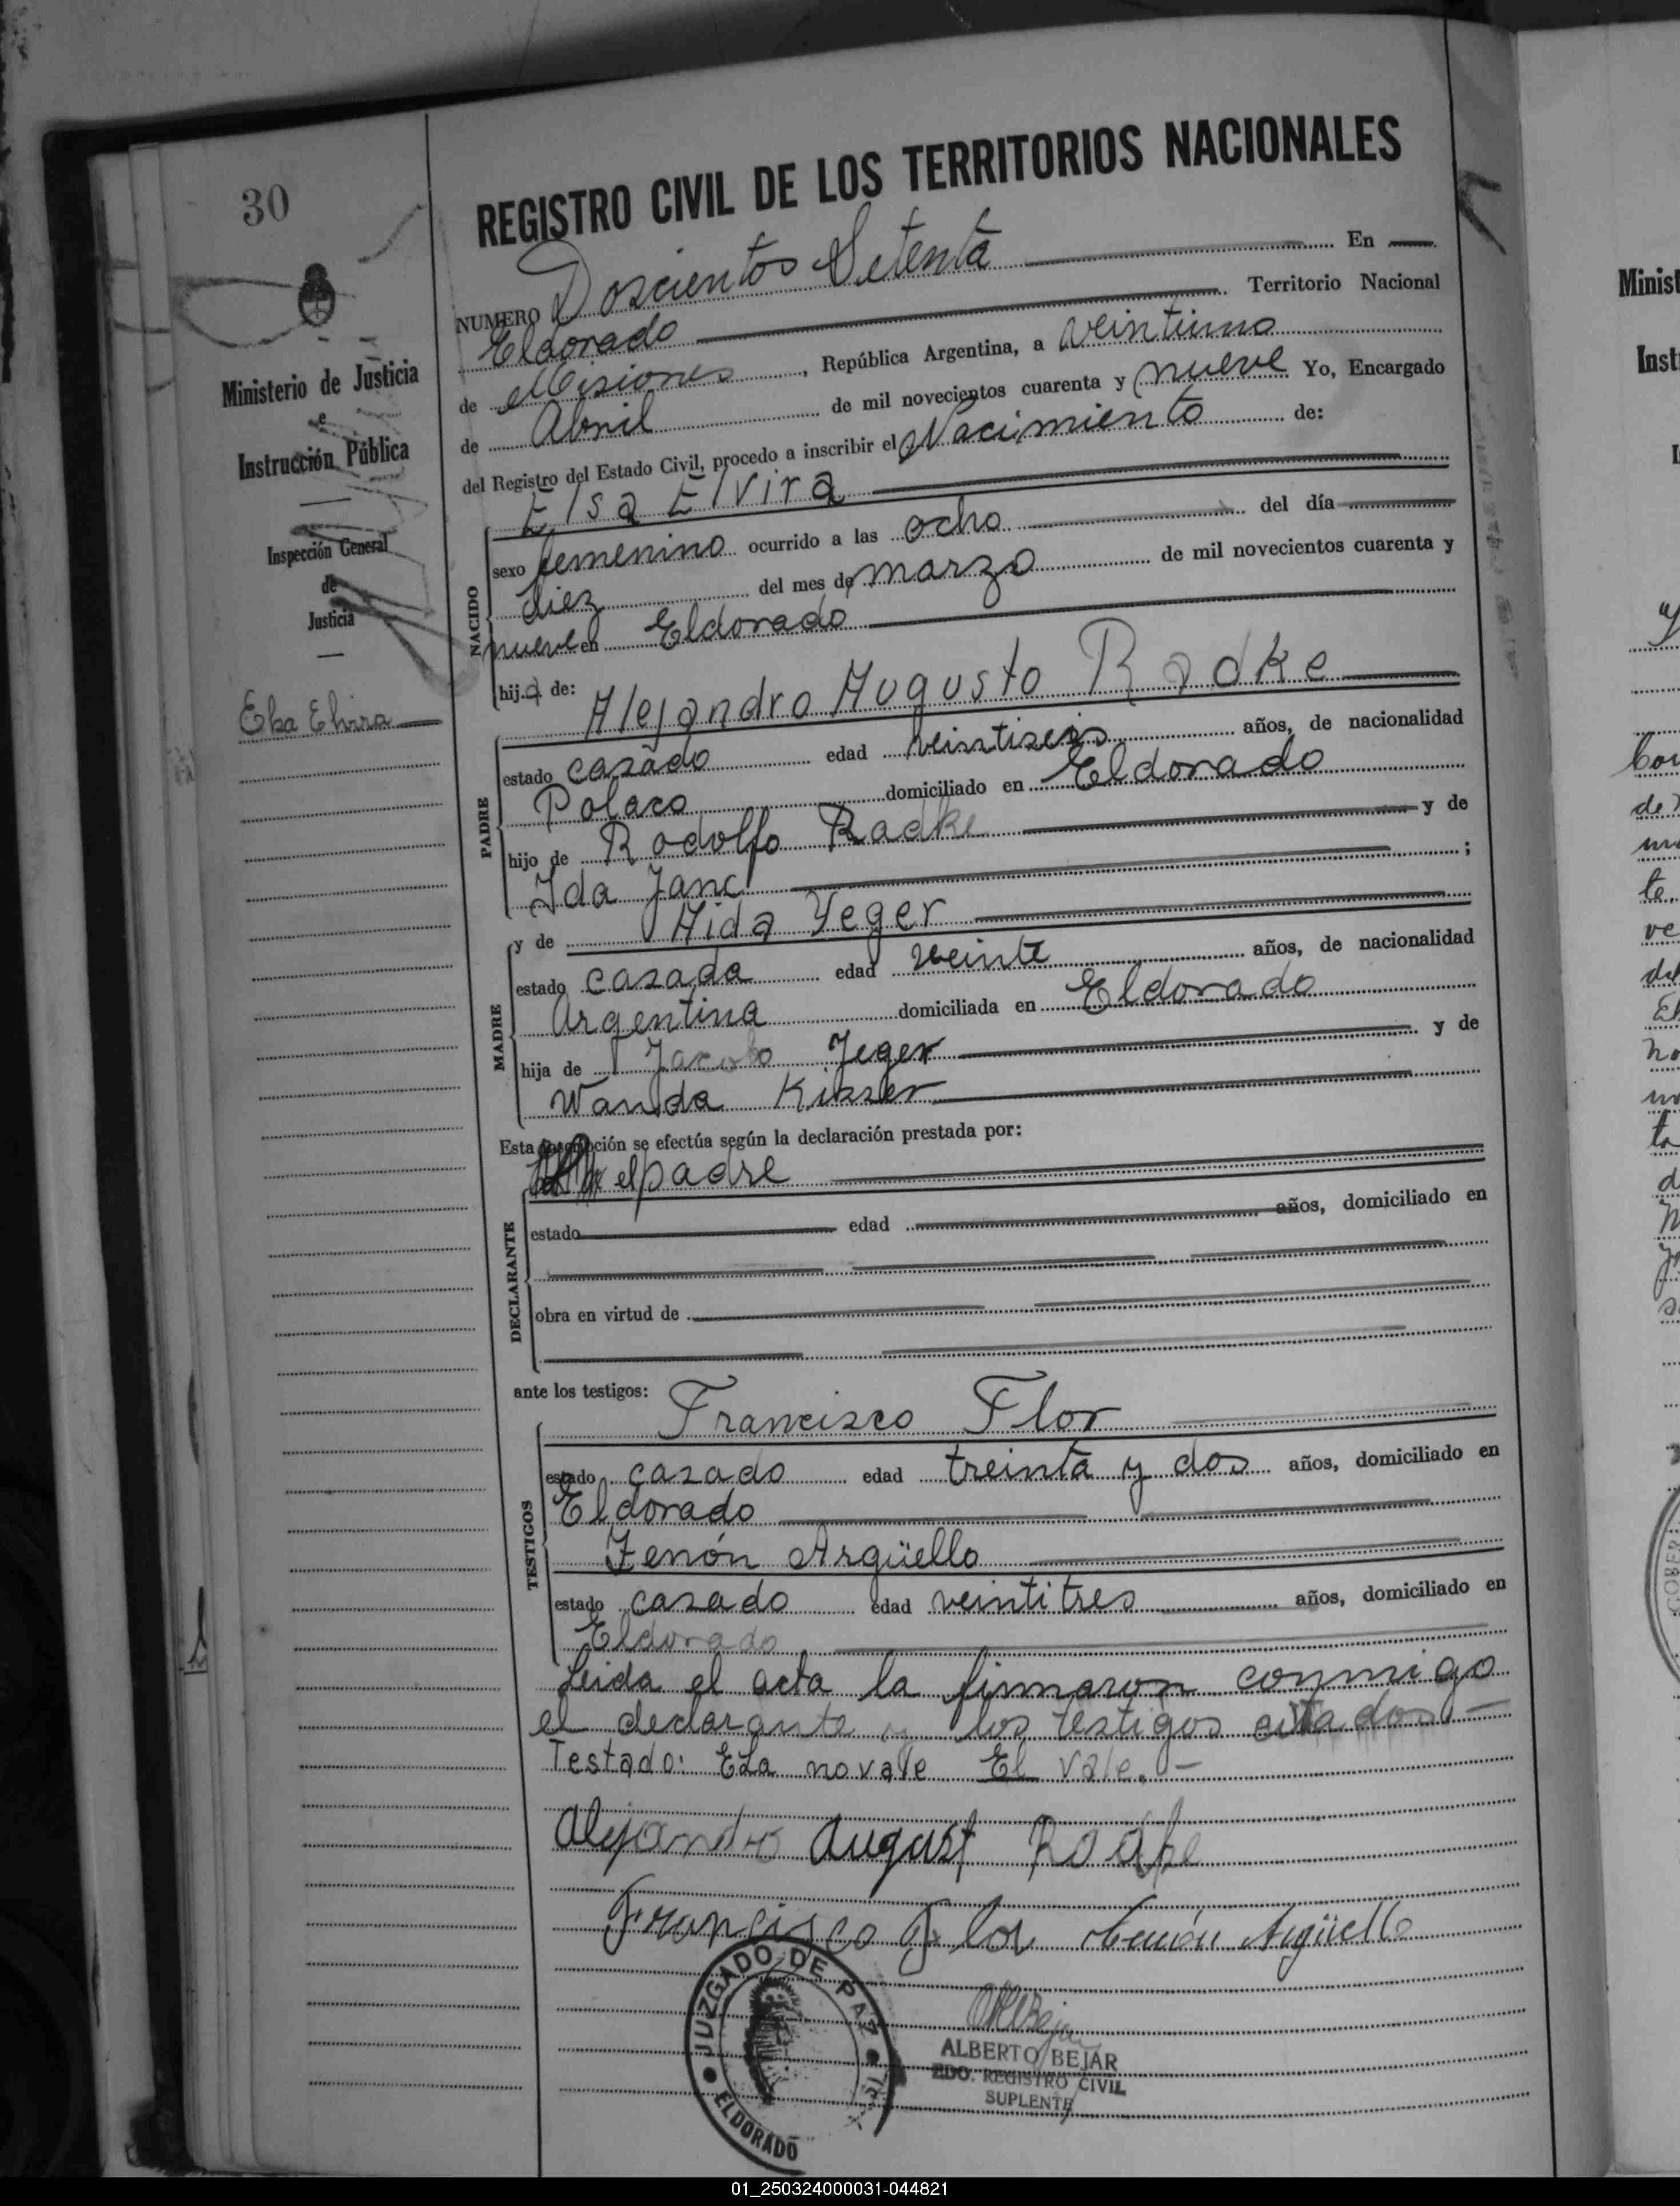 30
REGISTRO CIVIL DE LOS TERRITORIOS NACIONALES
NUMERO Doscientos Setenta En
Eldorado Territorio Nacional
de Misiones, República Argentina, a veintiuno
de Abril de mil novecientos cuarenta y nueve Yo, Encargado
del Registro del Estado Civil, procedo a inscribir el Nacimiento de:
Ministerio de Justicia
e
Instrucción Pública
Inspección General
de
Justicia
Elsa Elvira
NACIDO
Elsa Elvira
sexo femenino ocurrido a las ocho del día
diez del mes de marzo de mil novecientos cuarenta y
nueve en Eldorado
hija de: Alejandro Augusto Radke
PADRE
estado casado edad veintiseis años, de nacionalidad
Polaco domiciliado en Eldorado
hijo de Rodolfo Radke y de
Ida Janc ;
y de Aida Yeger
MADRE
estado casada edad veinte años, de nacionalidad
Argentina domiciliada en Eldorado
hija de Jacobo Jeger y de
Wanda Kisser
Esta inscripción se efectúa según la declaración prestada por:
el padre
DECLARANTE
estado edad años, domiciliado en
obra en virtud de
ante los testigos:
Francisco Flor
TESTIGOS
estado casado edad treinta y dos años, domiciliado en
Eldorado
Zenón Argüello
estado casado edad veintitres años, domiciliado en
Eldorado
Leida el acta la firmaron conmigo
el declarante y los testigos citados.-
Testado: Ela no vale El vale.-
Alejandro August Radke
Francisco Flor Zenón Argüello
JUZGADO DE PAZ
ELDORADO
ALBERTO BEJAR
EDO. REGISTRO CIVIL
SUPLENTE
Minist
Inst
01_250324000031-044821